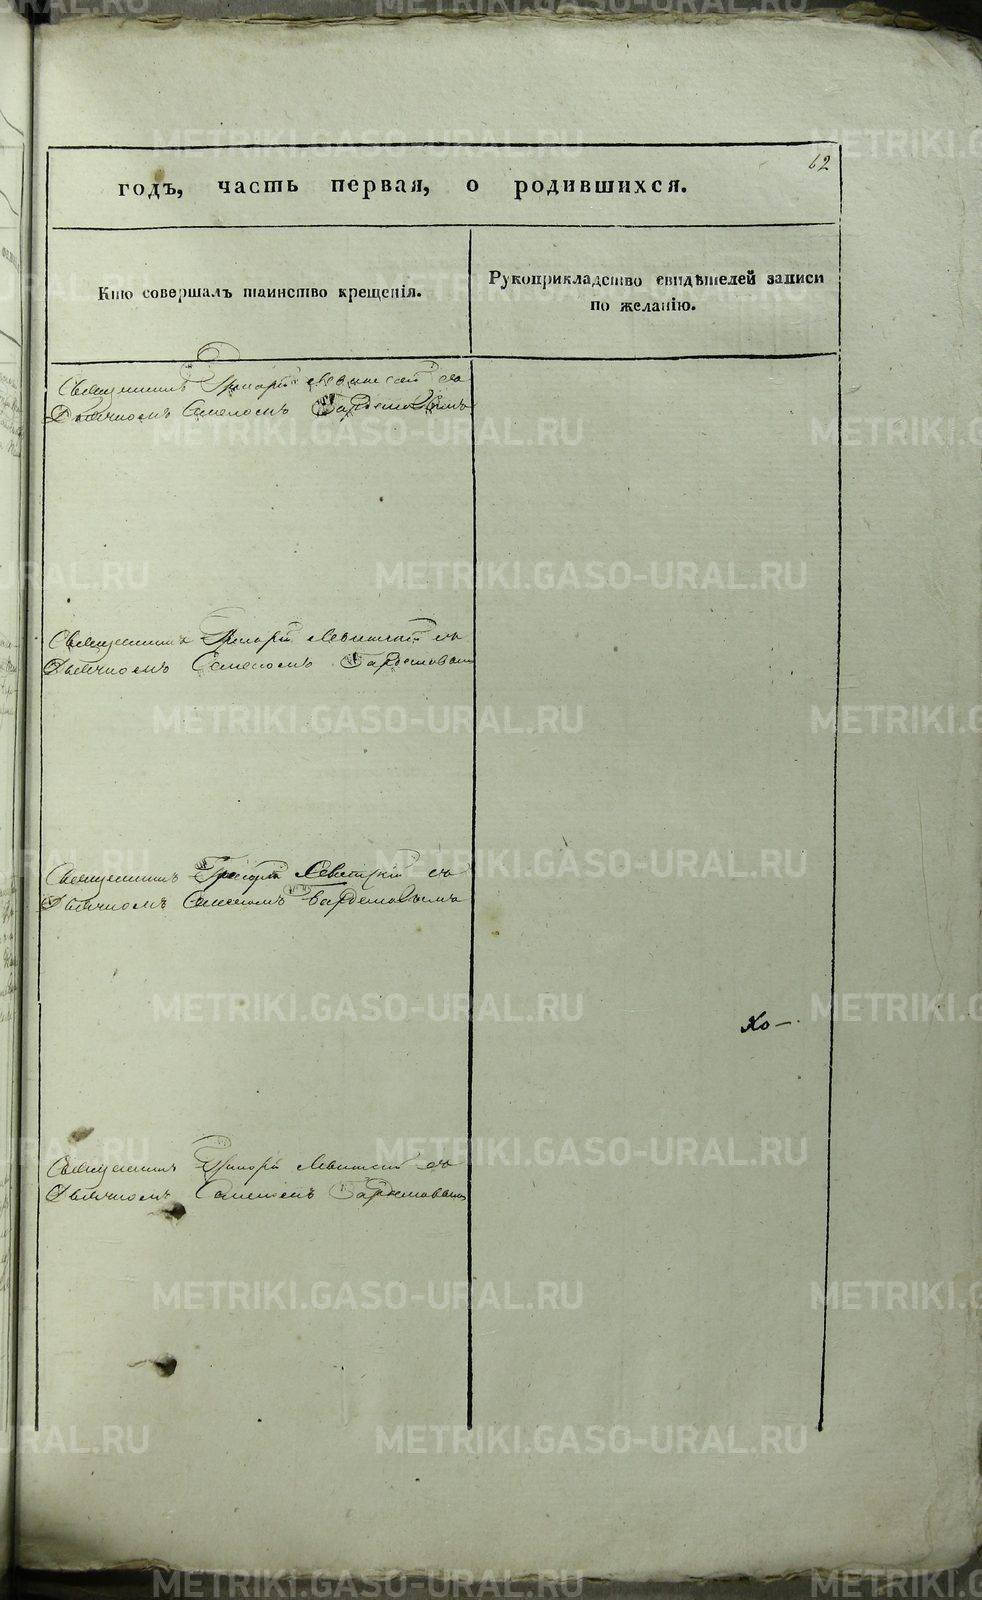 62
годъ, часть первая, о родившихся.
Кто совершалъ таинство крещенія.
Рукоприкладство свидѣтелей записи
по желанію.
Священникъ Григорій Левитскій съ
Дьячкомъ Семеномъ
Священникъ Григорій Левитскій съ
Дьячкомъ Семеномъ
Священникъ Григорій Левитскій съ
Дьячкомъ Семеномъ
Хо-
Священникъ Григорій Левитскій съ
Дьячкомъ Семеномъ
METRIKI.GASO-URAL.RU